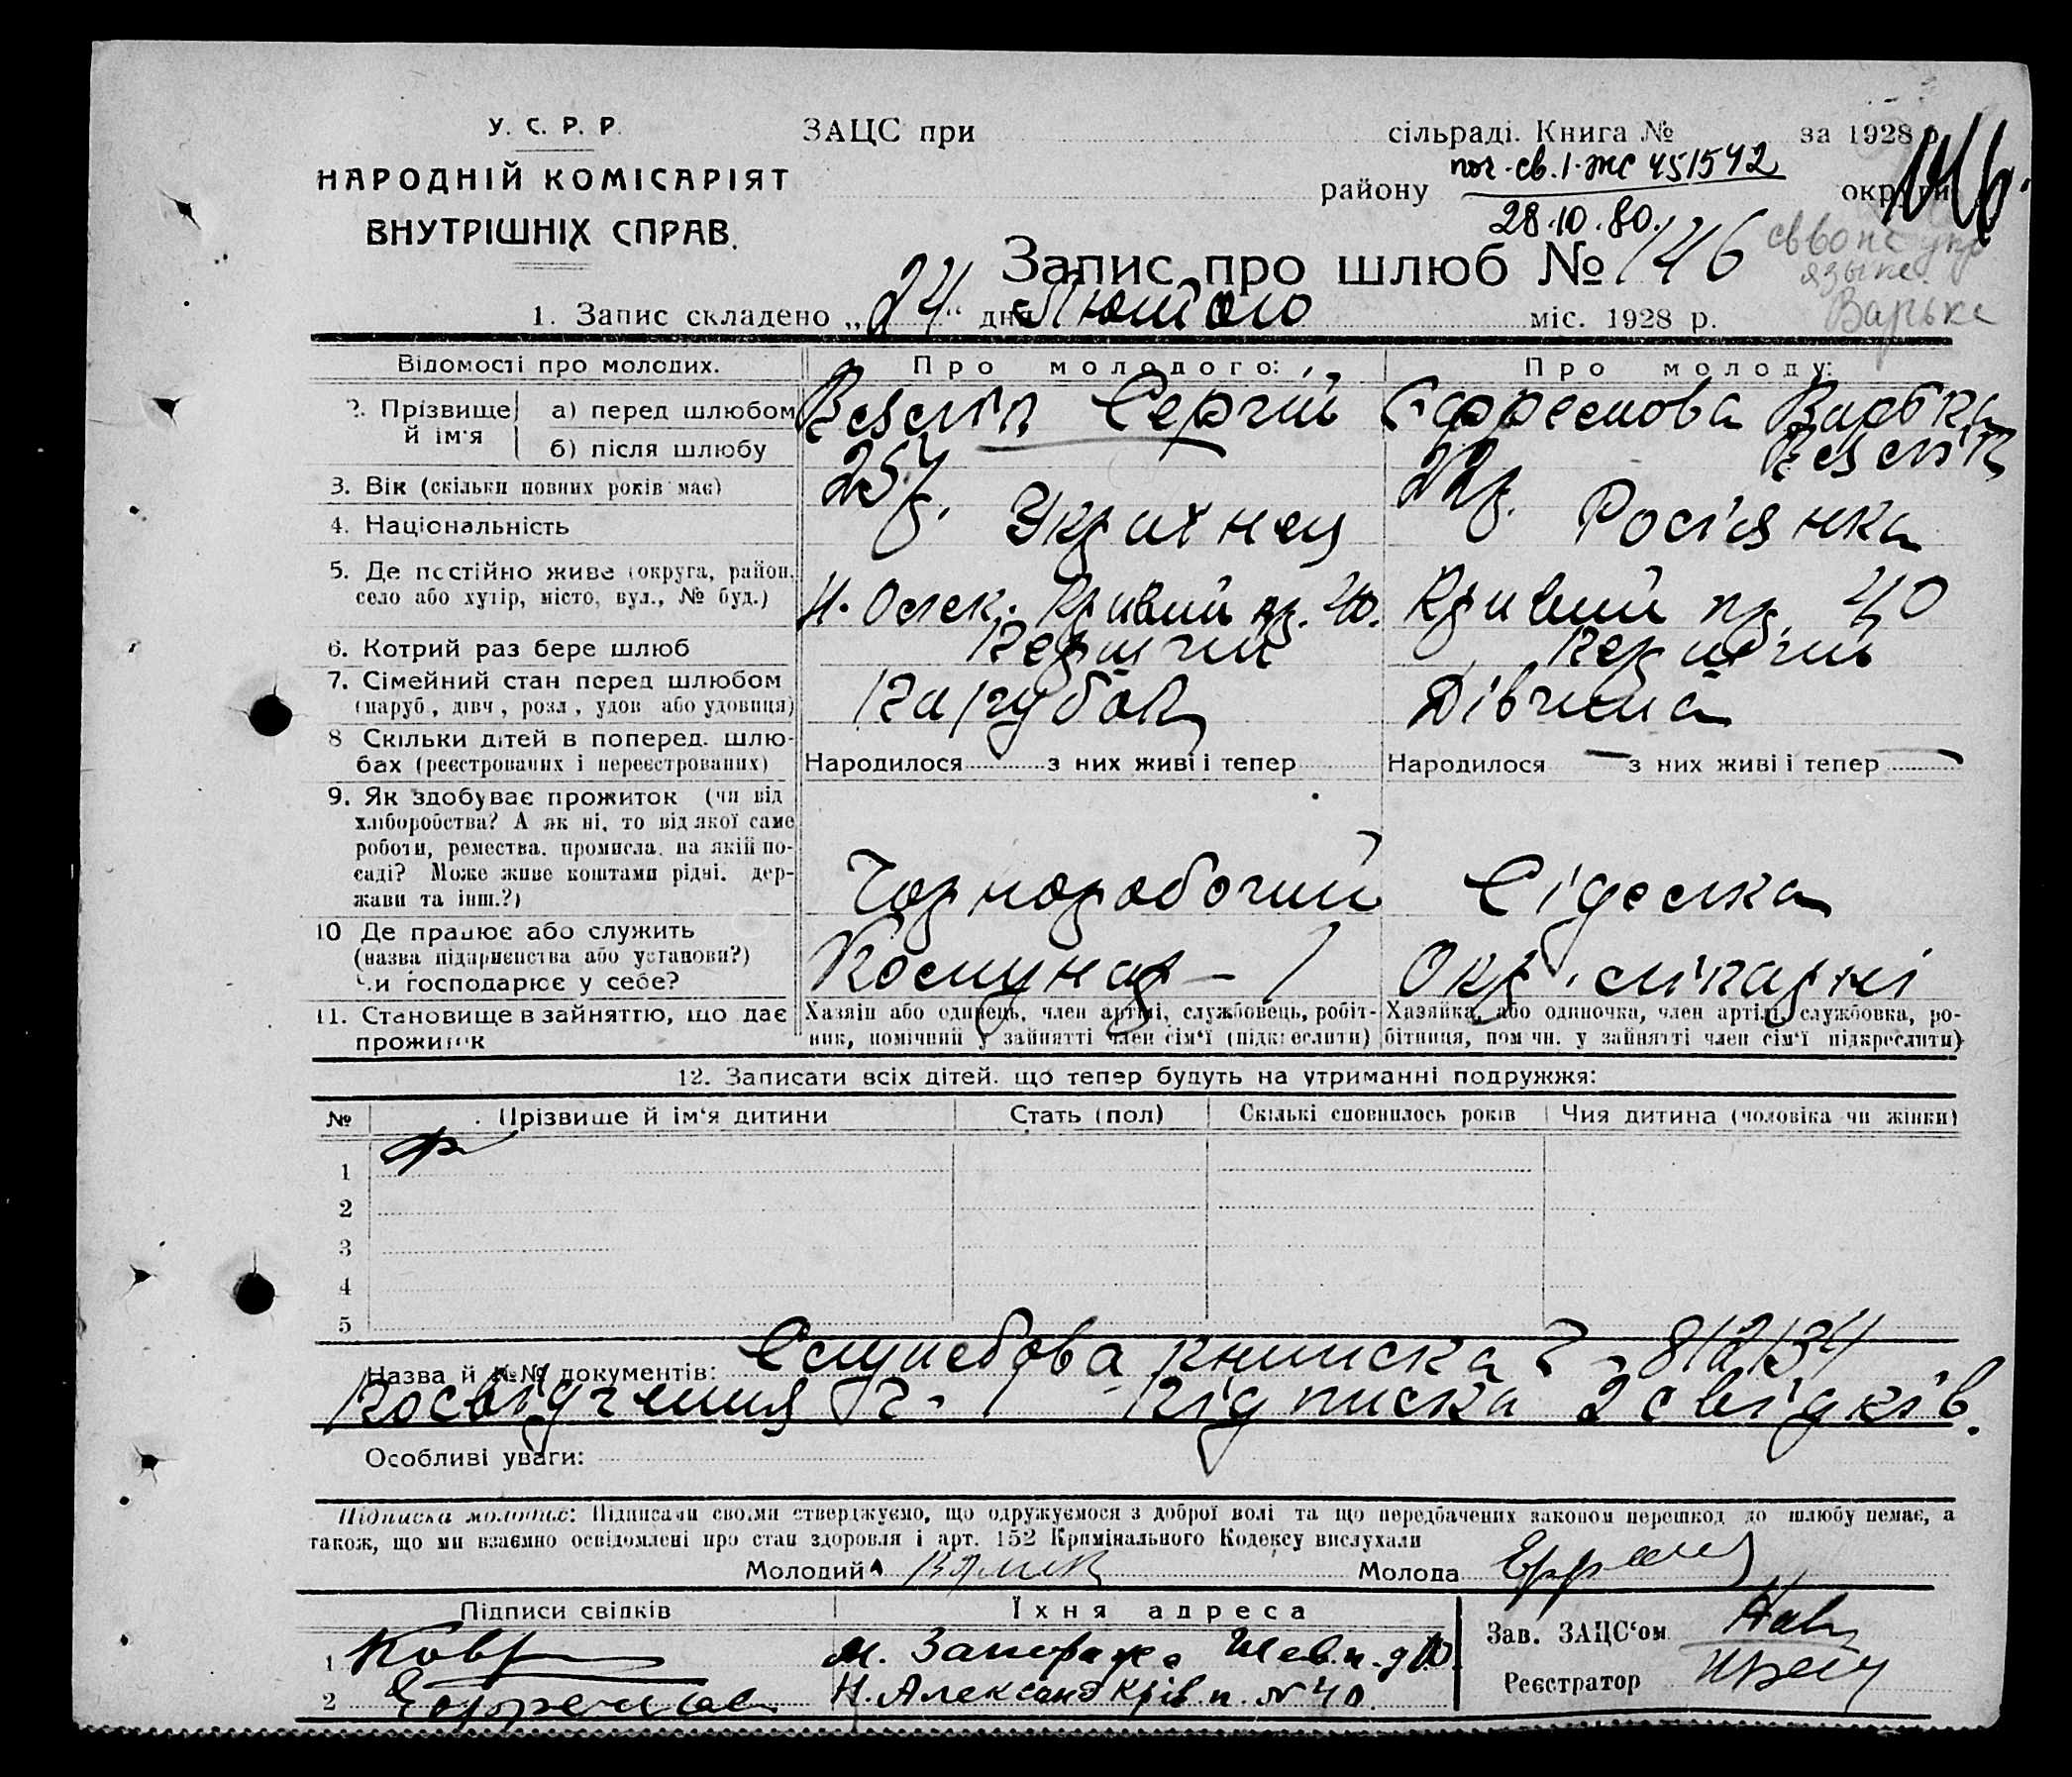 У. С. Р. Р.
НАРОДНІЙ КОМІСАРІЯТ
ВНУТРІШНІХ СПРАВ.
ЗАЦС при сільраді. Книга № за 1928 р.
району округи
поч. св. 1-ЖС 451542
28.10.80.
146.
Запис про шлюб № 146
1. Запис складено „24“ дня Лютого міс. 1928 р.
языке.
Варька
Відомості про молодих.
Про молодого:
Про молоду:
2. Прізвище й ім'я
а) перед шлюбом
Сергій
Варька
б) після шлюбу
3. Вік (скільки повних років має)
25 р.
22 р.
4. Національність
Українец
Росіянка
5. Де постійно живе (округа, район, село або хутір, місто, вул., № буд.)
Н. Олек. Кривий пр. 40.
Кривий пр. 40
6. Котрий раз бере шлюб
Перший
Перший
7. Сімейний стан перед шлюбом (паруб., дівч., розл., удов. або удовиця)
Парубок
Дівчина
8 Скільки дітей в поперед. шлюбах (реєстрованих і нереєстрованих)
Народилося з них живі і тепер
Народилося — з них живі і тепер —
9. Як здобуває прожиток (чи від хліборобства? А як ні, то від якої саме роботи, ремества, промисла, на якій посаді? Може живе коштами рідні, держави та інш.?)
Чорноробочий
Сіделка
10 Де працює або служить (назва підприємства або установи?) Чи господарює у себе?
Комунар - 1
Окр. лікарні
11. Становище в зайняттю, що дає прожиток
Хазяїн або одинець, член артілі, службовець, робітник, помічний у зайнятті член сім'ї (підкреслити)
Хазяйка, або одиночка, член артілі, службовка, робітниця, помічн. у зайнятті член сім'ї підкреслити)
12. Записати всіх дітей, що тепер будуть на утриманні подружжя:
№ Прізвище й ім'я дитини Стать (пол) Скількі сповнилось років Чия дитина (чоловіка чи жінки)
1
2
3
4
5
Назва й №№ документів: Служебова книжка
Посвідчення Підписка 2 свідків.
Особливі уваги:
Підписка молодих: Підписами своїми стверджуємо, що одружуємося з доброї волі та що передбачених законом перешкод до шлюбу немає, а
також, що ми взаємно освідомлені про стан здоровля і арт. 152 Кримінального Кодексу вислухали
Молодий Молода
Підписи свідків Їхня адреса
1 м. Запоріжжа Шев. п. д
2 Н. Александ Крів. п. № 40.
Зав. ЗАЦС'ом
Реєстратор